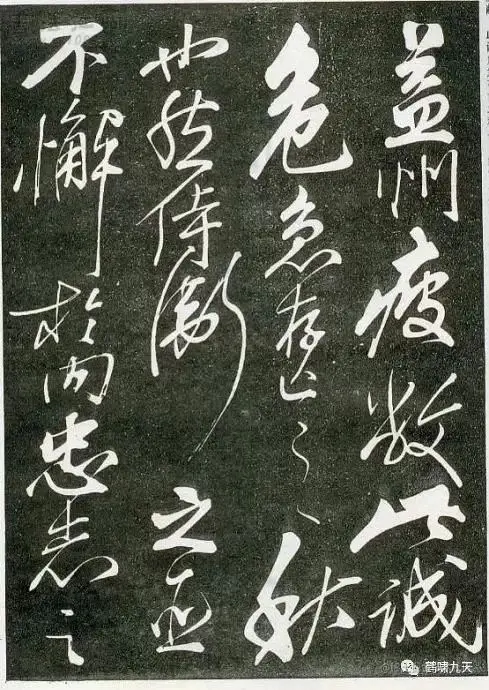 益州疲敝此誠
危急存亡之秋
也然侍衛之臣
不懈於内忠志之
鹤啸九天